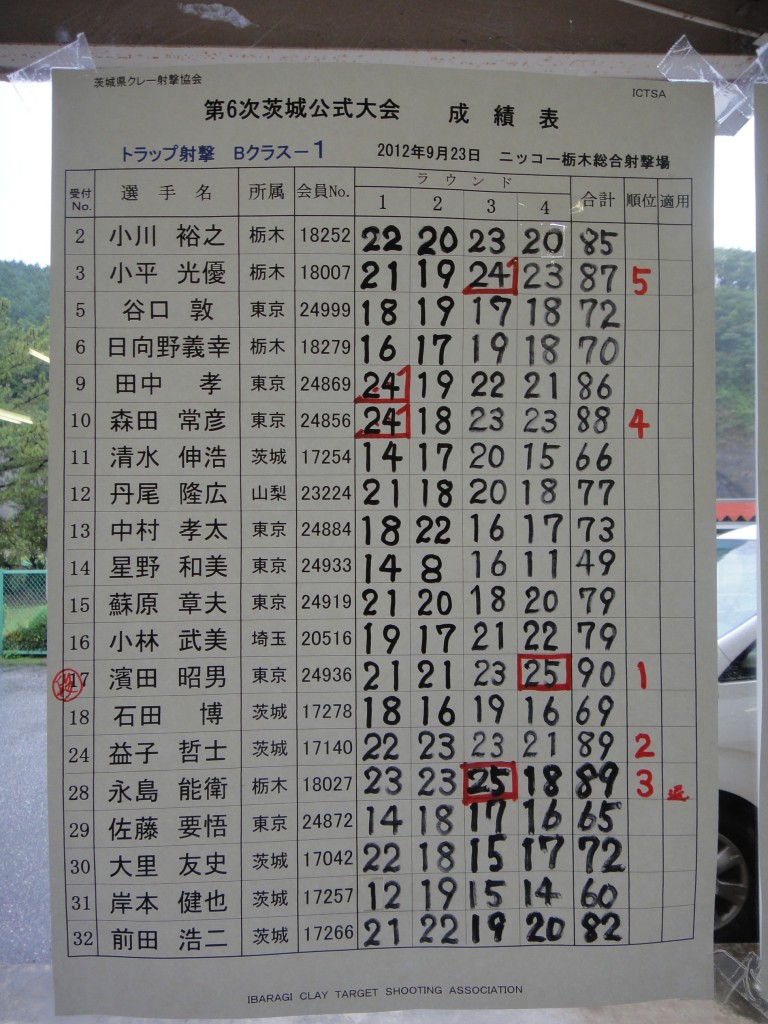 茨城県クレー射撃協会
ICTSA
第6次茨城公式大会 成績表
トラップ射撃 Bクラスー1 2012年9月23日 ニッコー栃木総合射撃場
受付No. 選手名 所属 会員No. ラウンド 1 2 3 4 合計 順位 適用
2 小川 裕之 栃木 18252 22 20 23 20 85
3 小平 光優 栃木 18007 21 19 24 23 87 5
5 谷口 敦 東京 24999 18 19 17 18 72
6 日向野義幸 栃木 18279 16 17 19 18 70
9 田中 孝 東京 24869 24 19 22 21 86
10 森田 常彦 東京 24856 24 18 23 23 88 4
11 清水 伸浩 茨城 17254 14 17 20 15 66
12 丹尾 隆広 山梨 23224 21 18 20 18 77
13 中村 孝太 東京 24884 18 22 16 17 73
14 星野 和美 東京 24933 14 8 16 11 49
15 蘇原 章夫 東京 24919 21 20 18 20 79
16 小林 武美 埼玉 20516 19 17 21 22 79
17 濱田 昭男 東京 24936 21 21 23 25 90 1
18 石田 博 茨城 17278 18 16 19 16 69
24 益子 哲士 茨城 17140 22 23 23 21 89 2
28 永島 能衛 栃木 18027 23 23 25 18 89 3
29 佐藤 要悟 東京 24872 14 18 17 16 65
30 大里 友史 茨城 17042 22 18 15 17 72
31 岸本 健也 茨城 17257 12 19 15 14 60
32 前田 浩二 茨城 17266 21 22 19 20 82
IBARAGI CLAY TARGET SHOOTING ASSOCIATION